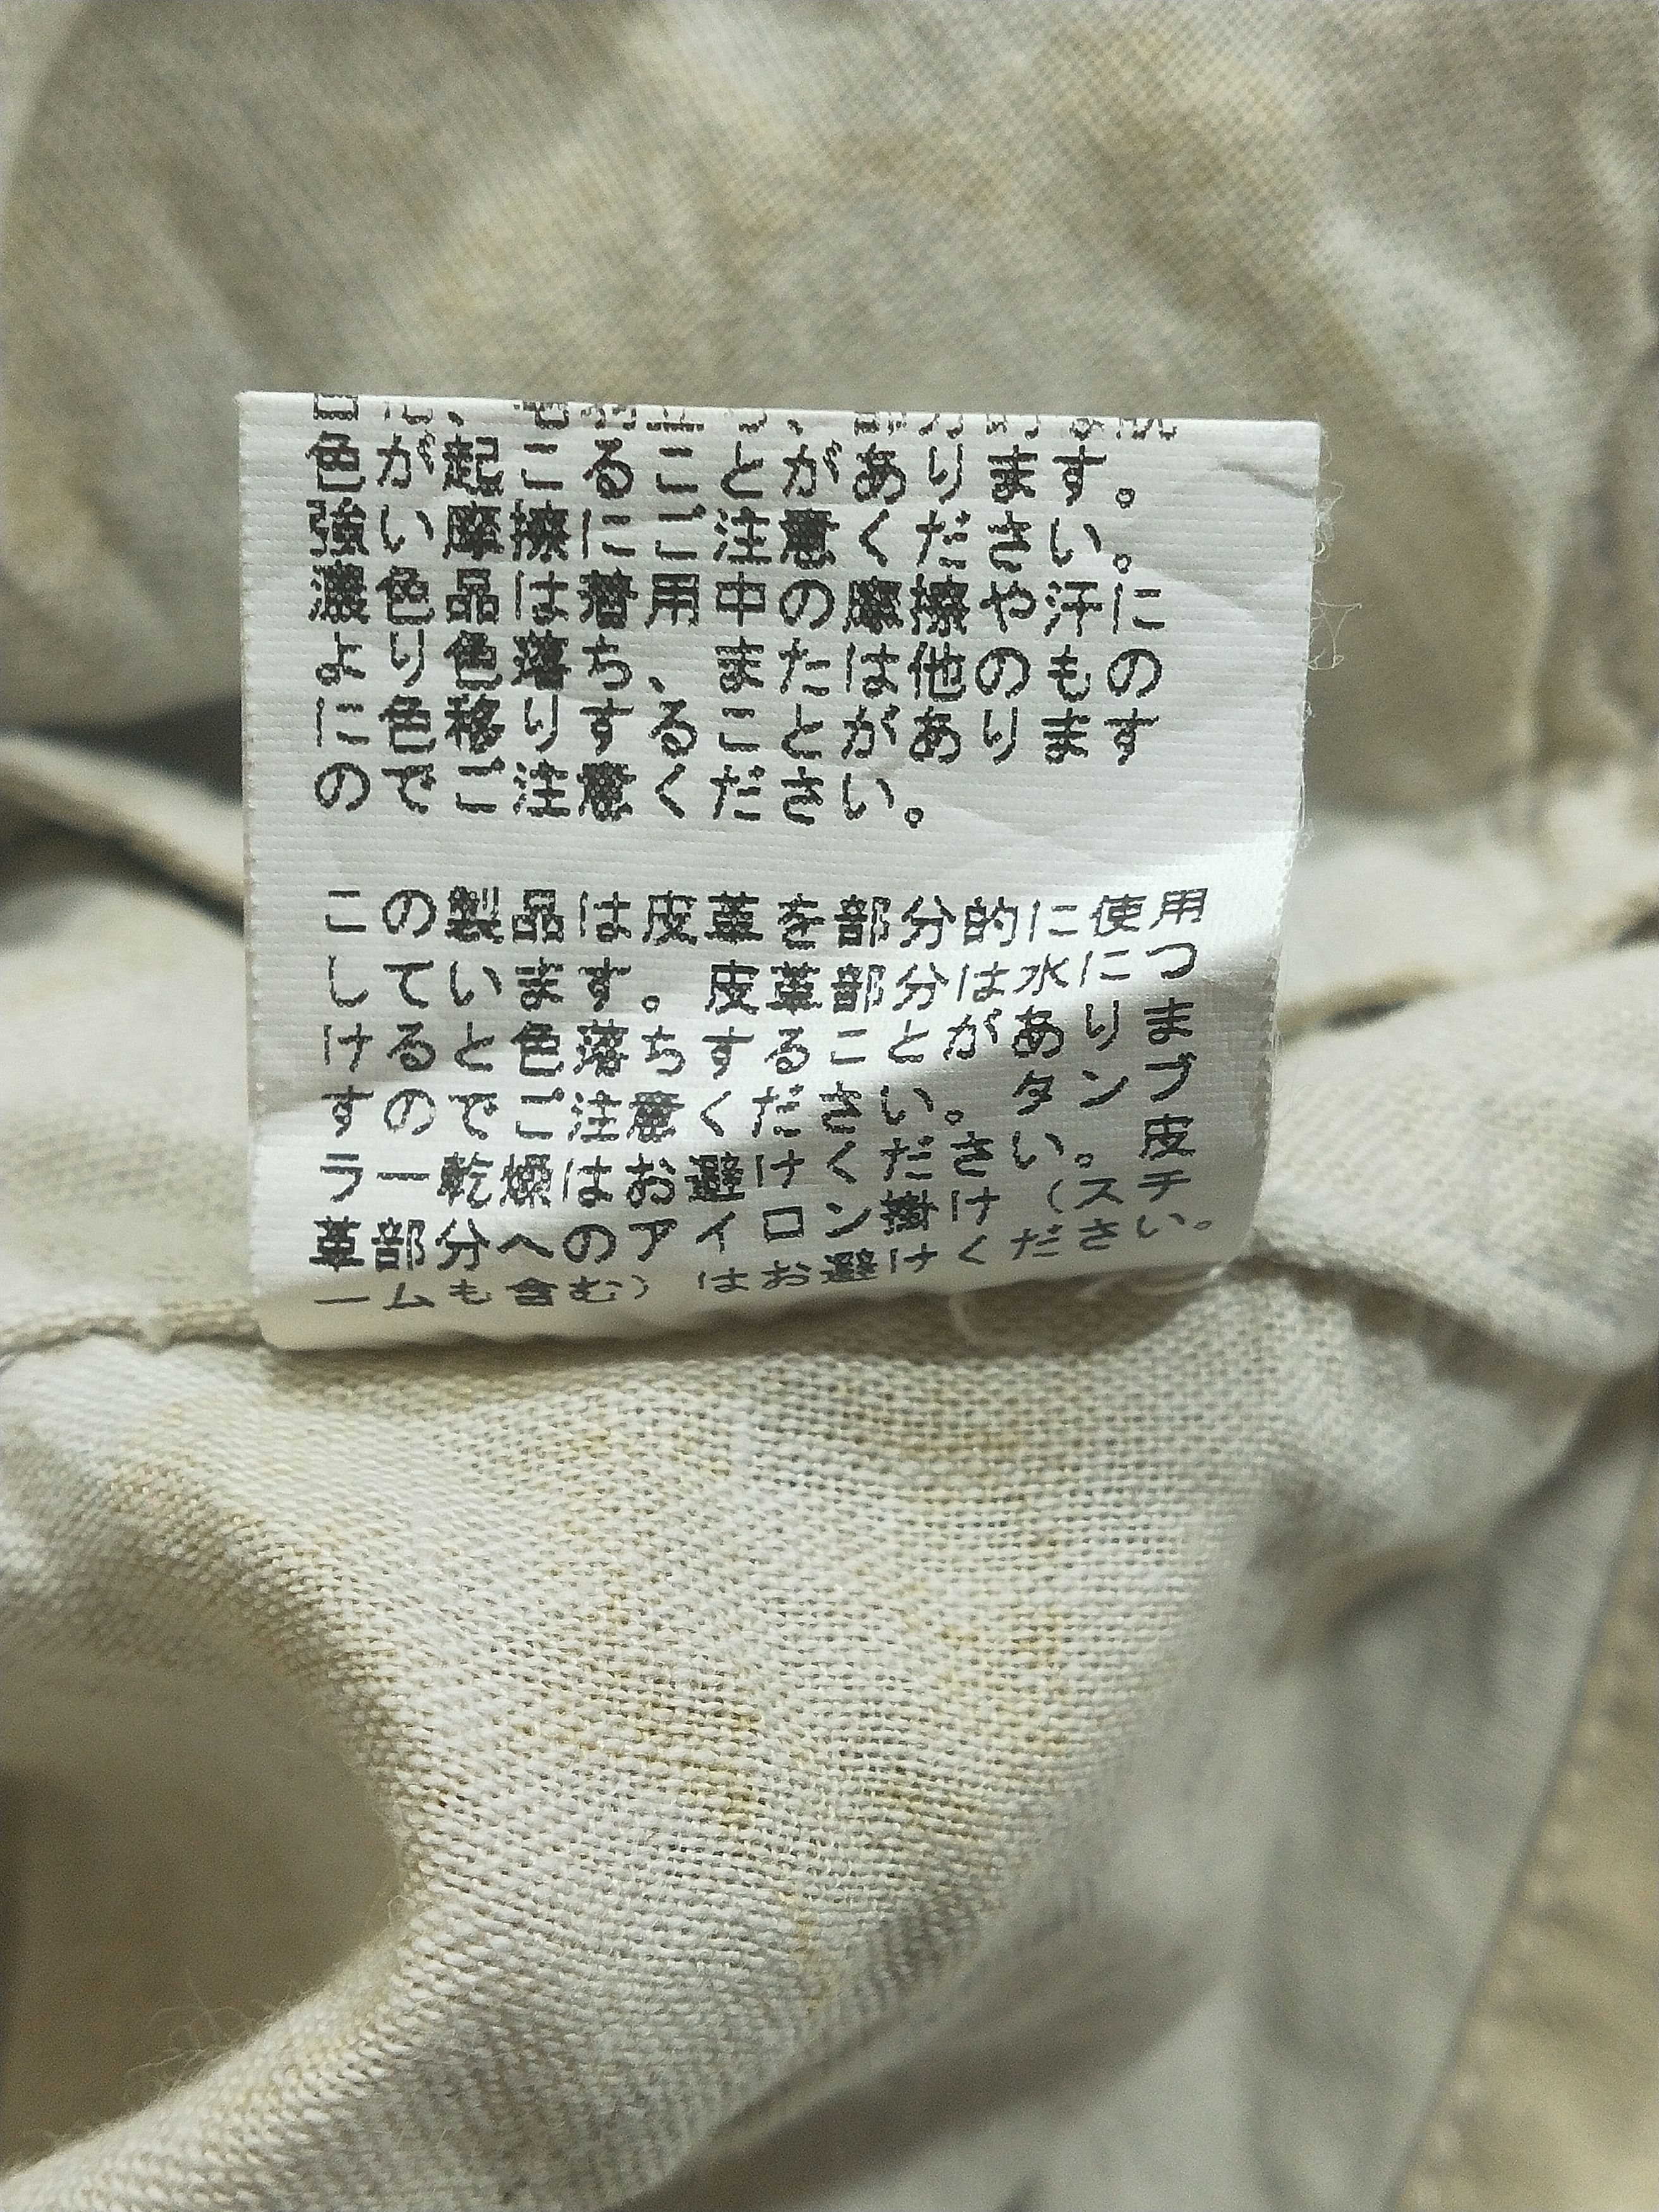 色が起こることがあります。
強い摩擦にご注意ください。
濃色品は着用中の摩擦や汗に
より色落ち、または他のもの
に色移りすることがあります
のでご注意ください。
この製品は皮革を部分的に使用
しています。皮革部分は水につ
けると色落ちすることがありま
すのでご注意ください。タンブ
ラー乾燥はお避けください。皮
革部分へのアイロン掛け（スチ
ームも含む）はお避けください。